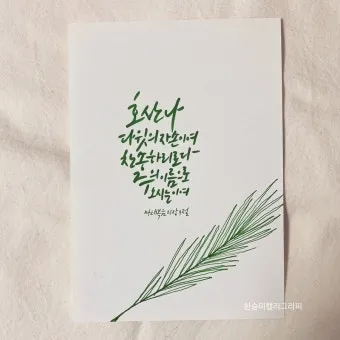 호산나
다윗의 자손이여
찬송하리로다
주의 이름으로
오시는이여
마태복음 21장 9절
한승미캘리그라피